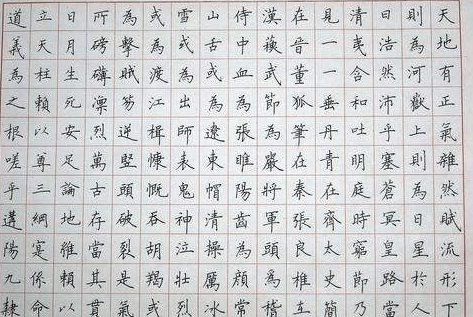 天地有正氣雜然賦流形下
則為河嶽上則為日星於人
曰浩然沛乎塞蒼冥皇路當
清夷含和吐明庭時窮節乃
見一一垂丹青在齊太史簡
在晉董狐筆在秦張良椎在
漢蘓武節為嚴將軍頭為嵇
侍中血為張睢陽齒為顏常
山舌或為遼東帽清操厲冰
雪或為出師表鬼神泣壯烈
或為渡江楫慷慨吞胡羯或
為擊賊笏逆豎頭破裂是氣
所磅礡凜烈萬古存當其貫
日月生死安足論地維賴以
立天柱賴以尊三綱寔係命
道義為之根嗟乎遘陽九隸